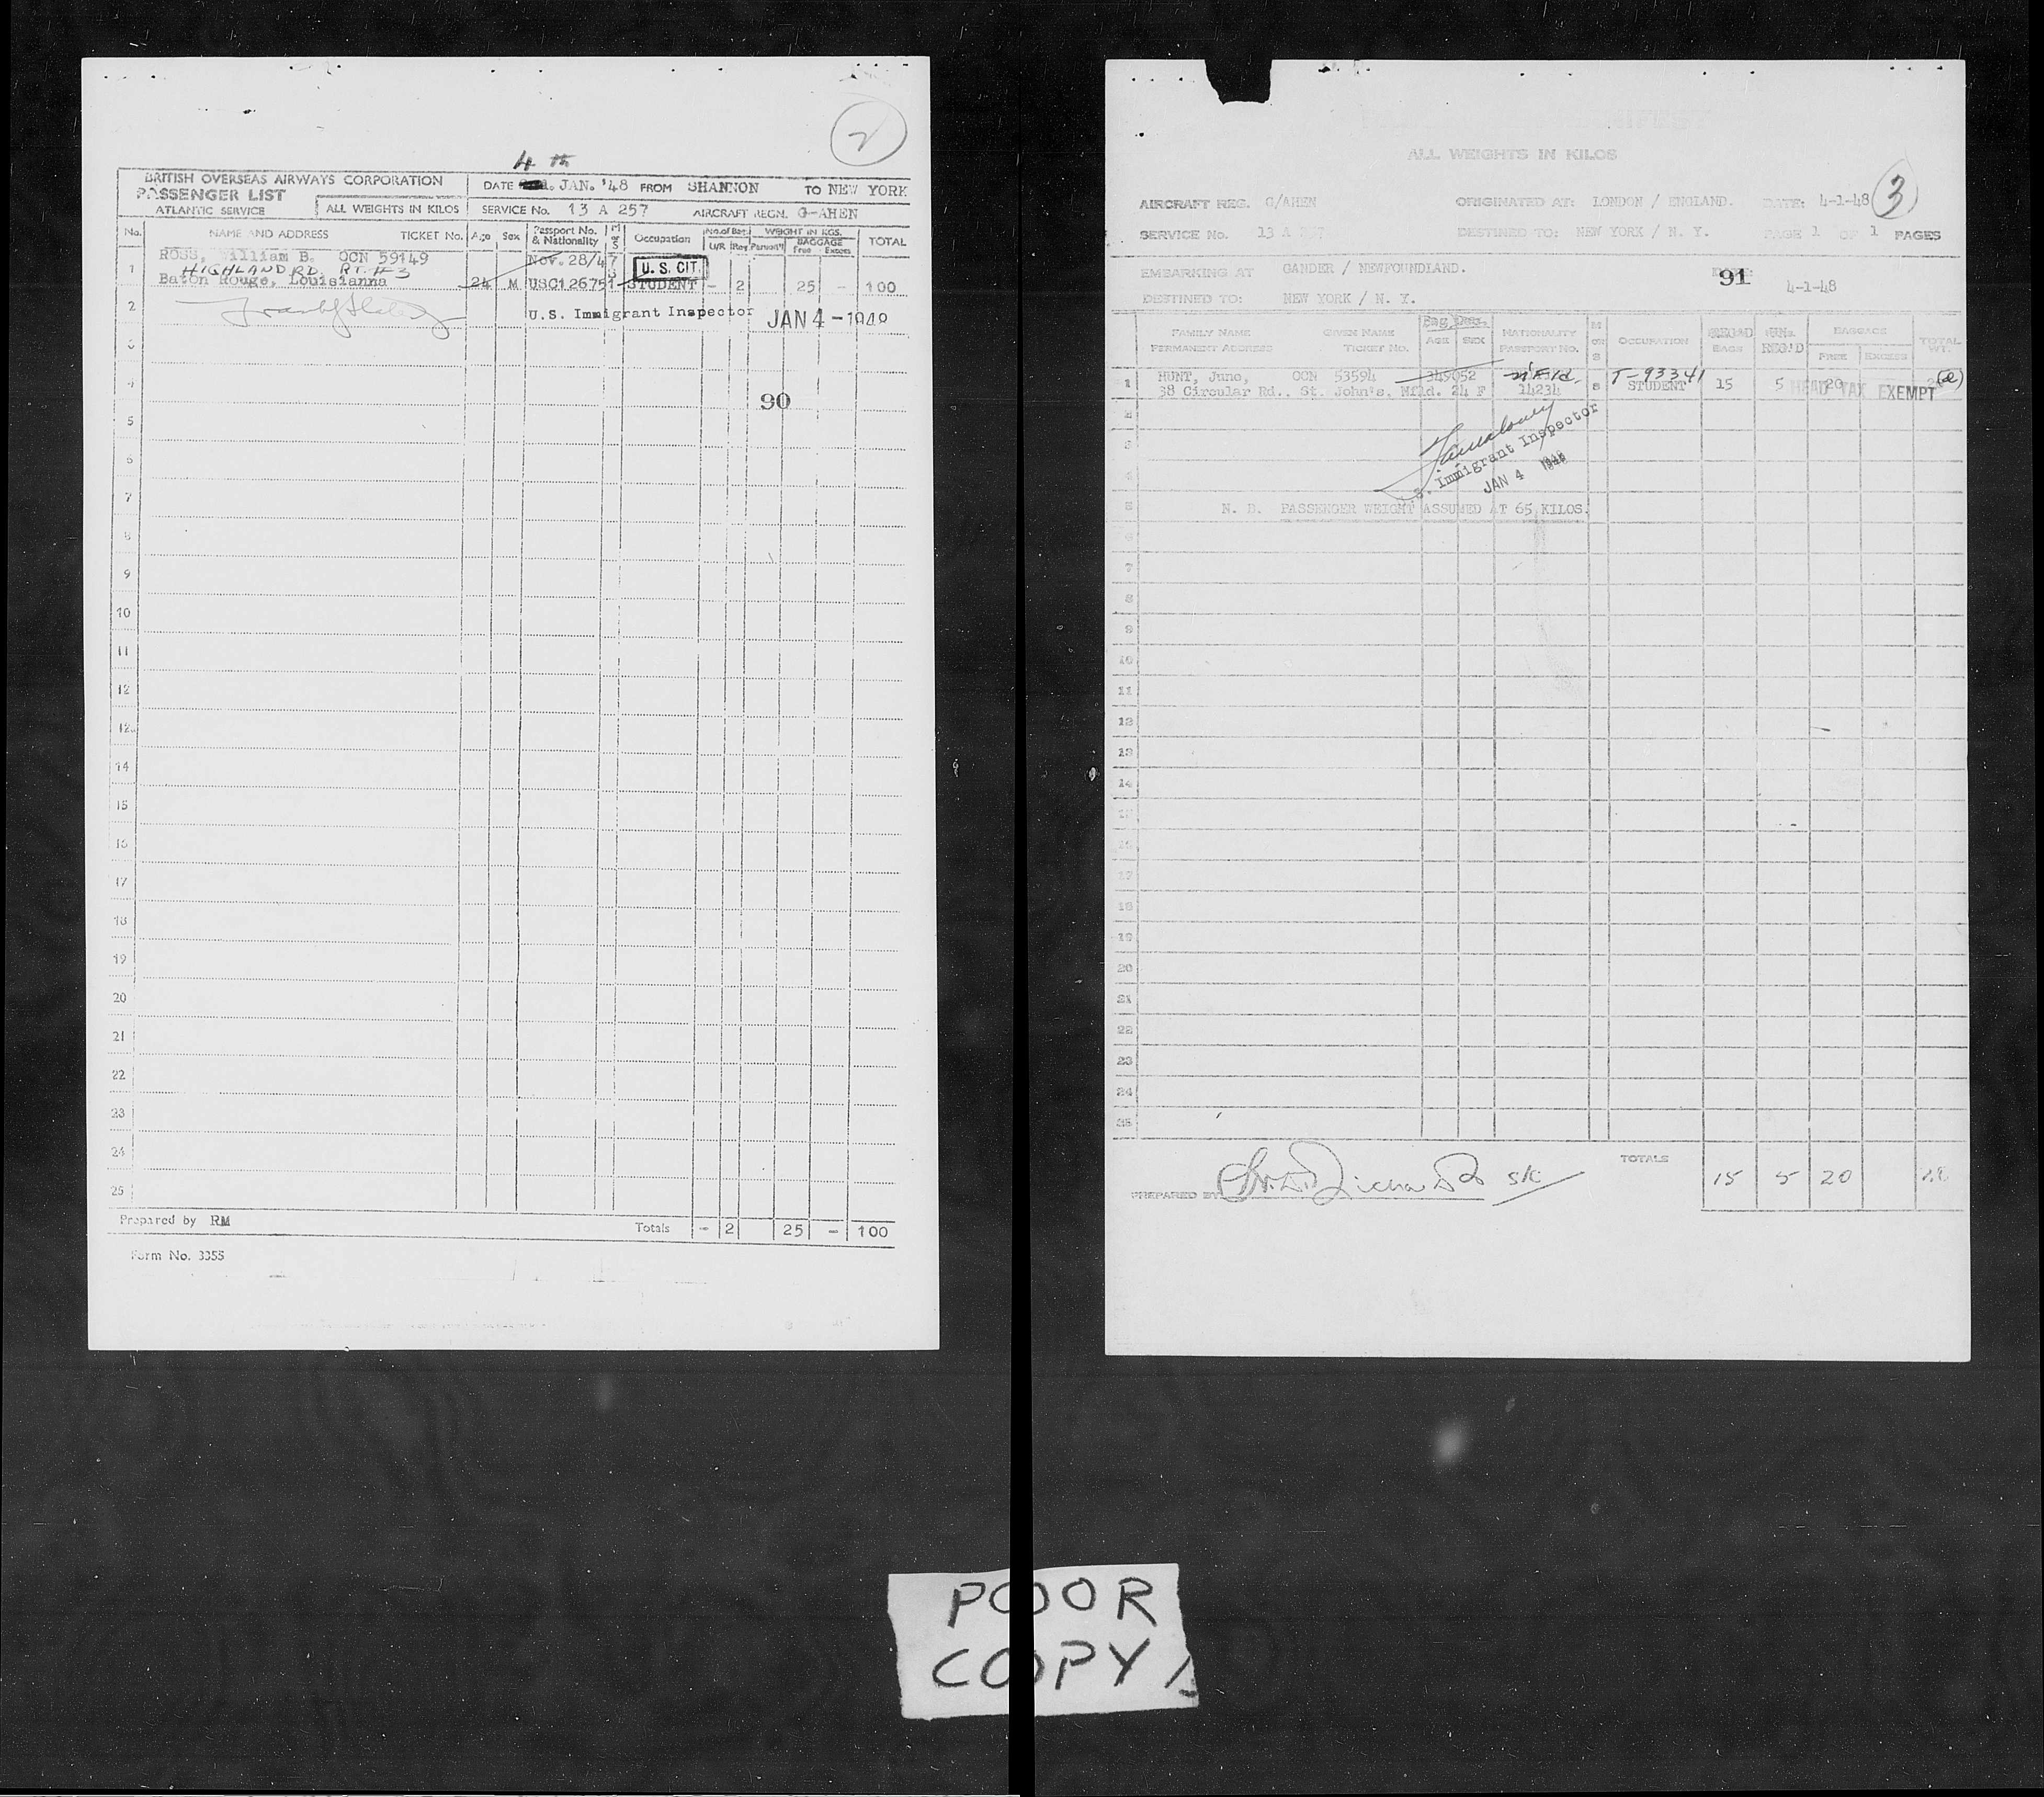 2
4 th
BRITISH OVERSEAS AIRWAYS CORPORATION
PASSENGER LIST
ATLANTIC SERVICE
ALL WEIGHTS IN KILOS
DATE JAN. '48 FROM SHANNON TO NEW YORK
SERVICE No. 13 A 257 AIRCRAFT REGN. G-AHEN
No. NAME AND ADDRESS TICKET No. Age Sex Passport No. & Nationality M or S Occupation No. of Bag. U/R Reg WEIGHT IN KGS. Person'l BAGGAGE Free Excess TOTAL
ROSS, William B. OCN 59149 Nov. 28/47 U. S. CIT.
1 HIGHLAND RD. RT. #3
Baton Rouge, Louisianna 24 M USC126751 S STUDENT - 2 25 - 100
2 U.S. Immigrant Inspector JAN 4 - 1948
3
4
90
5
6
7
8
9
10
11
12
12.
14
15
16
17
18
19
20
21
22
23
24
25
Prepared by RM Totals - 2 25 - 100
Form No. 3355
ALL WEIGHTS IN KILOS
3
AIRCRAFT REG. G/AHEN ORIGINATED AT: LONDON / ENGLAND. DATE: 4-1-48
SERVICE No. 13 A 257 DESTINED TO: NEW YORK / N. Y. PAGE 1 OF 1 PAGES
EMBARKING AT GANDER / NEWFOUNDLAND. 91 4-1-48
DESTINED TO: NEW YORK / N. Y.
FAMILY NAME GIVEN NAME AGE SEX NATIONALITY M OR S OCCUPATION REG'D BAGS UN-REG'D BAGGAGE FREE EXCESS TOTAL WT.
PERMANENT ADDRESS TICKET No. PASSPORT No.
1 HUNT, June, OCN 53594 349052 N'Fld. T-93341
38 Circular Rd., St. John's, Nfld. 24 F 14234 S STUDENT 15 5 20 HEAD TAX EXEMPT
2
3
4
Immigrant Inspector
JAN 4 1948
5 N. B. PASSENGER WEIGHT ASSUMED AT 65 KILOS.
6
7
8
9
10
11
12
13
14
15
16
17
18
19
20
21
22
23
24
25
TOTALS 15 5 20
PREPARED BY
POOR
COPY